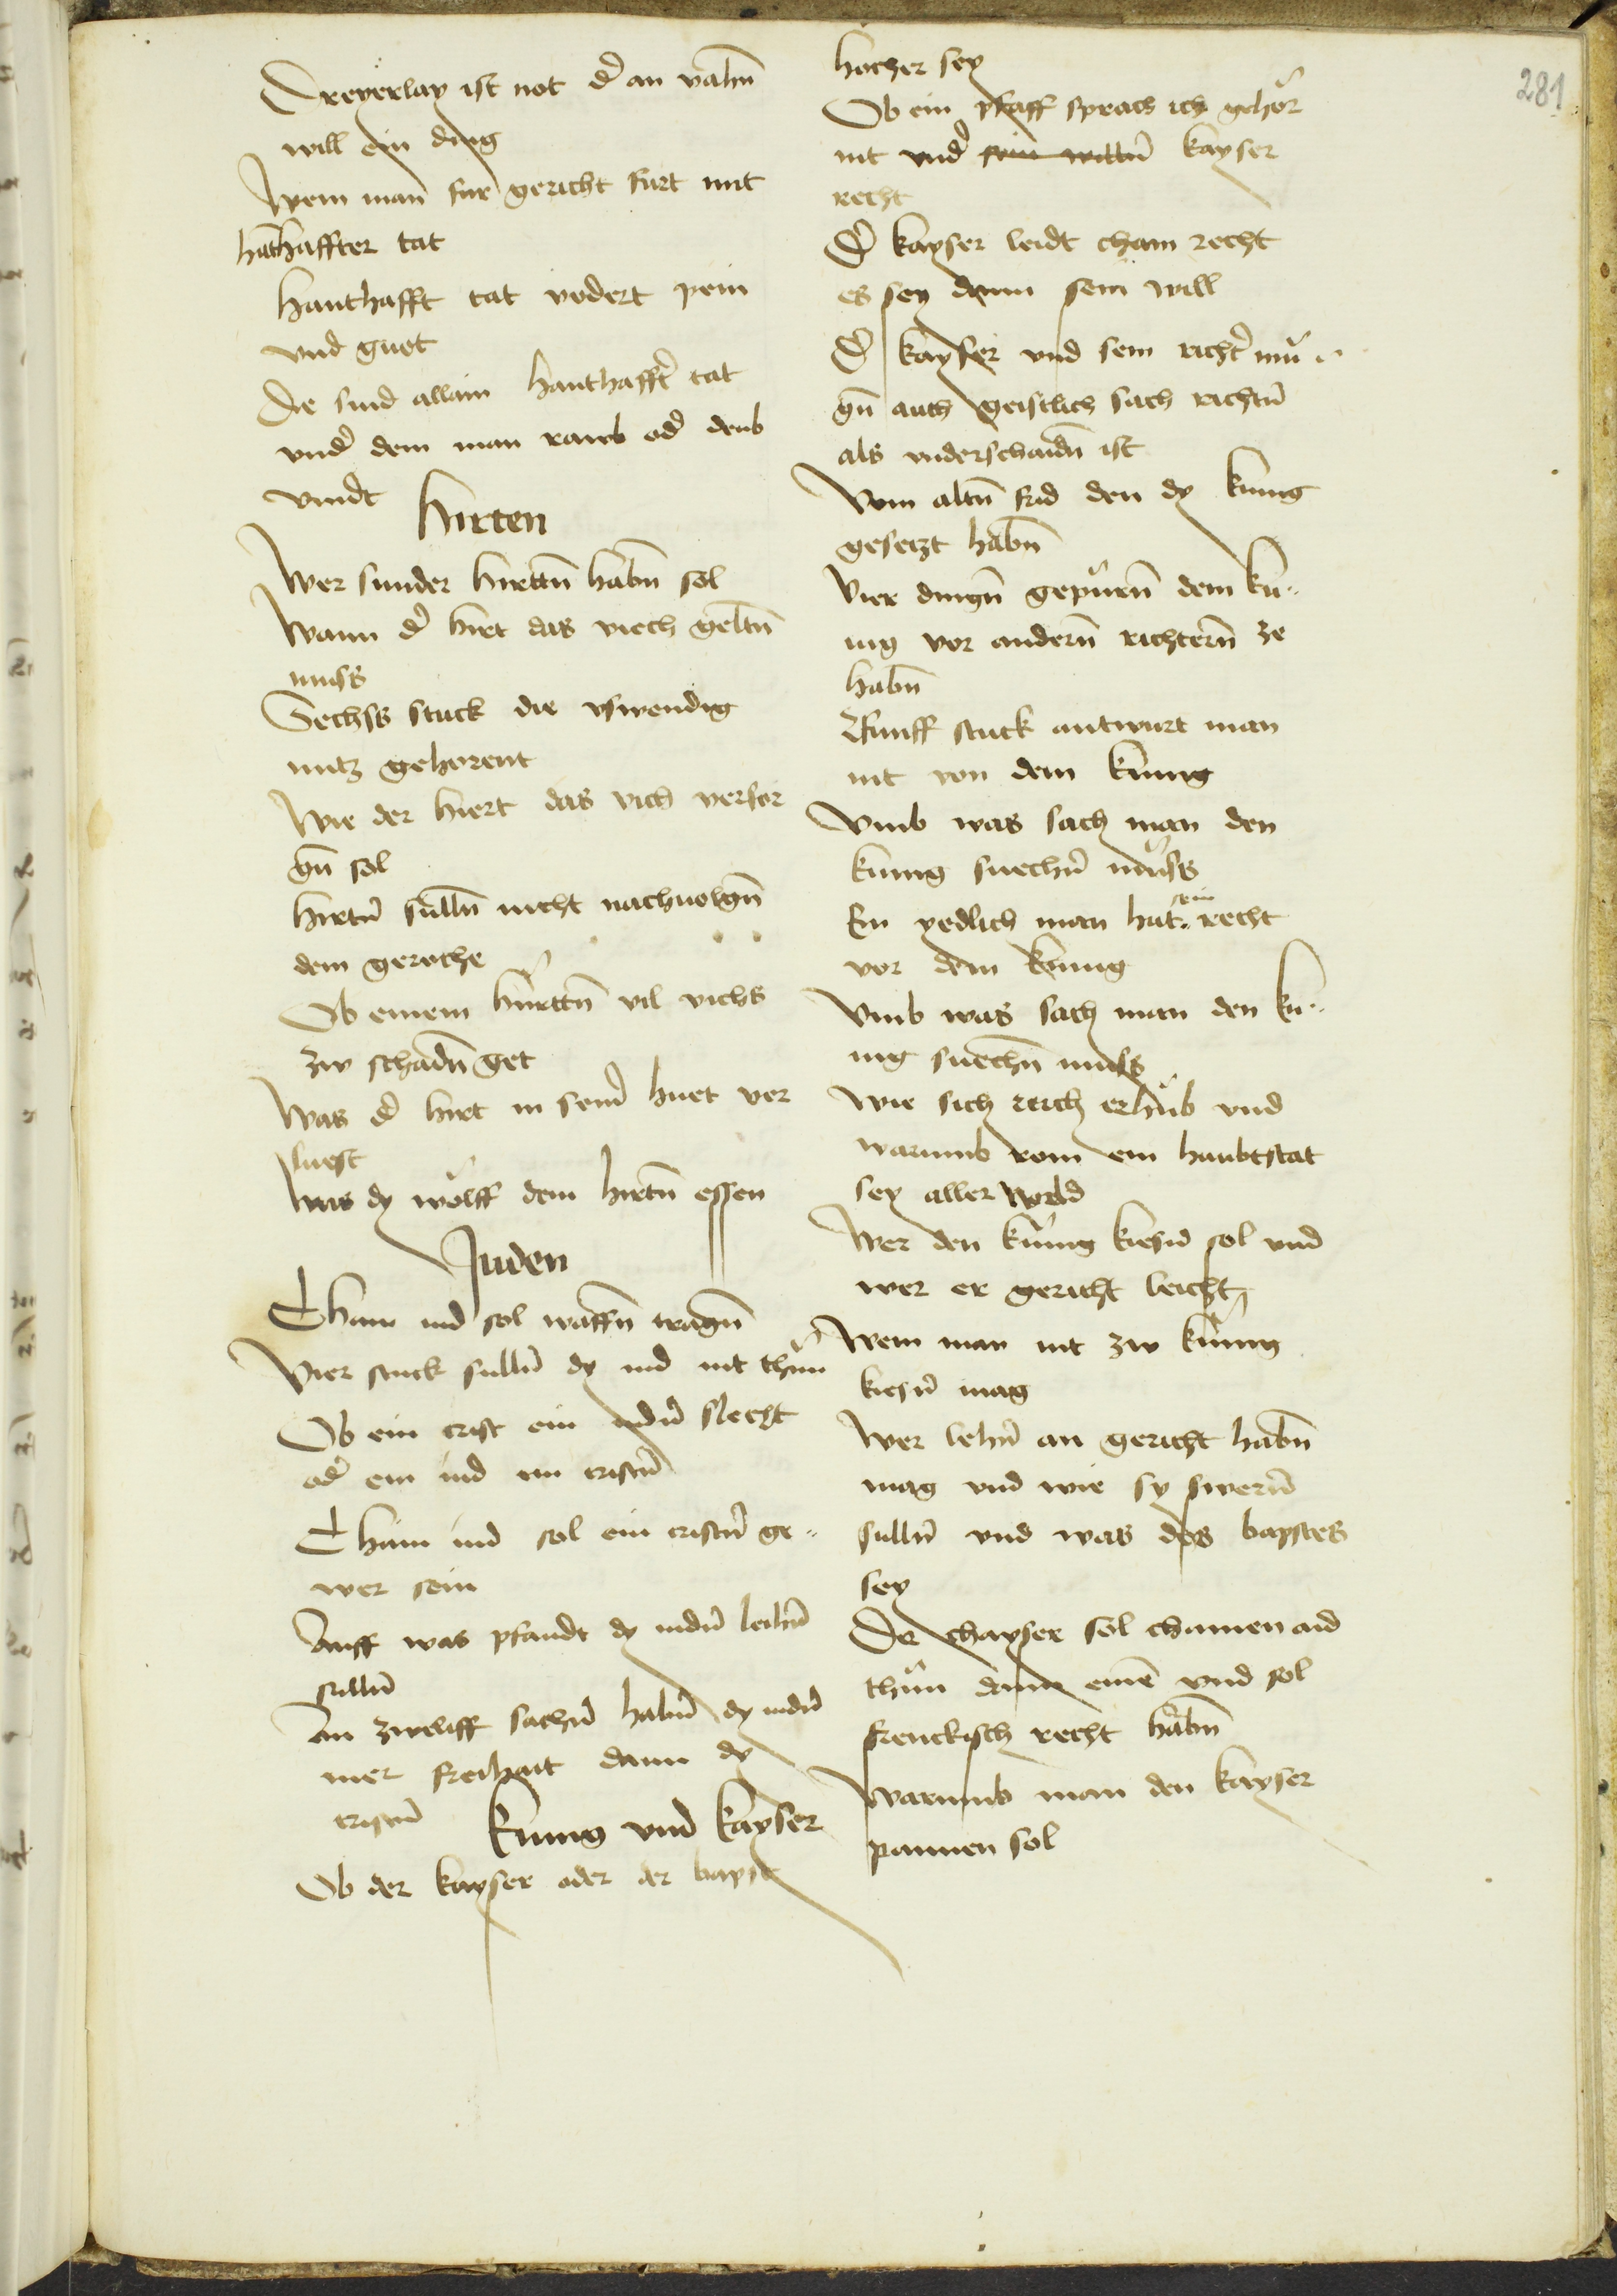 281
Dreyerlay ist not d̉ an vahn̄
will ein ding
Wem man fur gericht furt mit
hāthaffter tat
hanthafft tat vodert pein
vnd guet
Die sind allain hanthafft̉ tat
vnd̉ dem man raub od̉ deub
vindt
hirten
Wer sunder hirttn̄ habn̄ sol
Wann d̉ hirt das viech geltn̄
muss
Sechss stuck die vswendig
nutz gehorent
Wie der hiert das vich versor
gn̄ sol
hirtn̄ sulln̄ nicht nachuolgn̄
dem geruche
Ob einem hirttn̄ vil vichs
zw schadn̄ get
Was d̉ hirt in sein̉ huet ver
luest
Was dy wolff dem hirtn̄ essen
Juden
Cham iud sol waffn̄ tragn̄
Vier stuck sulln̄ dy iud nit thun
Ob ein crist ein iudn̄ slecht
od̉ ein iud ein cristn̄
Cham iud sol ein cristn̄ ge-
wer sein
Auff was pfandt dy iudn̄ leihn̄
sulln̄
An zweliff sachn̄ habn̄ dy iudn̄
mer freihait dann dy
cristn̄
kunig vnd kayser
Ob der kayser oder der bapst
hocher sey
Ob ein pfaff sprach ich gehor
nit vnd̉ kayser
recht
D̉ kayser leidt cham recht
es sey dann sein will
D̉ kayser vnd sein richt̉ mu-
gn̄ auch geistlich sach richtn̄
als vnderschaidn̄ ist
Vom altn̄ frid den dy kunig
gesetzt habn̄
Vier dingn̄ gepurn̄ dem ku-
nig vor andern̄ richtern̄ ze
habn̄
Funff stuck antwurt man
nit von dem kunig
Vmb was sach man den
kunig suechn̄ muss
Ein yedlich man hat sein recht
vor dem kunig
Vmb was sach man den ku-
nig suechn̄ muss
Wie sich reich erhub vnd
warumb rom ein haubtstat
sey aller world
Wer den kunig kiesn̄ sol vnd
wer er gericht leicht
Wem man nit zw kunig
kiesn̄ mag
Wer lehn̄ an gericht habn̄
mag vnd wie sy swern̄
sulln̄ vnd was des bapstes
sey
Der chayser sol chainen aid
thun dann einē vnd sol
frenckisch recht habn̄
Warumb man den kayser
pannen sol